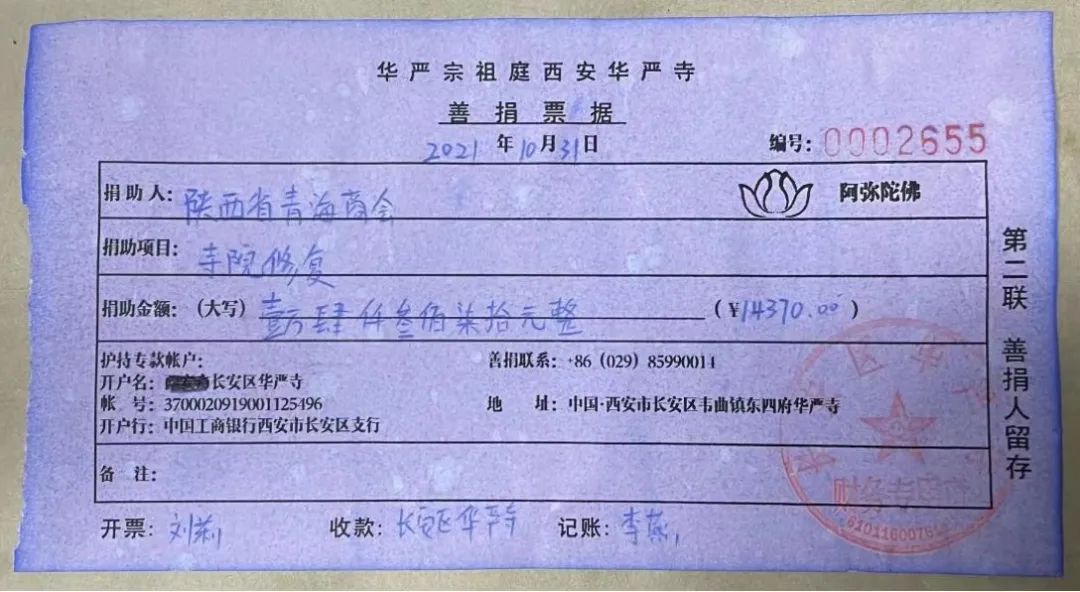 华严宗祖庭西安华严寺
善捐票据
2021年10月31日 编号：0002655
捐助人：陕西省青海商会 阿弥陀佛
捐助项目：寺院修复
捐助金额：（大写）壹万肆仟叁佰柒拾元整（¥14370.00）
护持专款帐户： 善捐联系：+86（029）85990014
开户名：长安区华严寺
帐 号：3700020919001125496 地 址：中国·西安市长安区韦曲镇东四府华严寺
开户行：中国工商银行西安市长安区支行
备 注：
开票： 收款：长安区华严寺 记账：李燕
第二联 善捐人留存
财务专用章